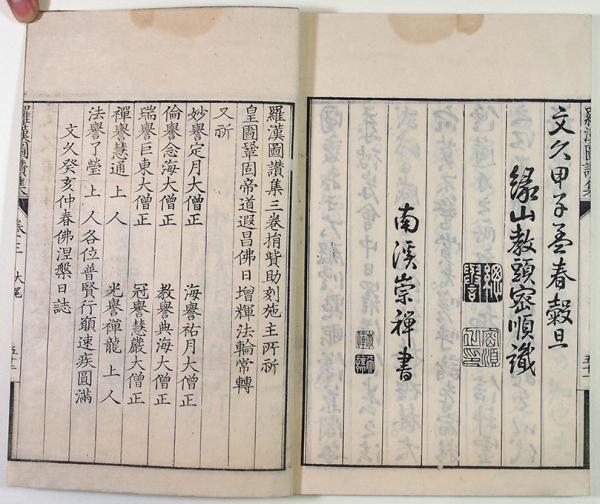 羅漢圖讚集
文久甲子孟春穀旦
緣山教頭密順識
南溪崇禪書
羅漢圖讚集三卷捐貲助刻施主所祈
皇圖鞏固帝道遐昌佛日增輝法輪常轉
又祈
妙譽定月大僧正 海譽祐月大僧正
倫譽念海大僧正 教譽典海大僧正
瑞譽巨東大僧正 冠譽慧嚴大僧正
禪譽慧通上人 光譽禪龍上人
法譽了瑩上人各位普賢行願速疾圓滿
文久癸亥仲春佛涅槃日誌
羅漢圖讚集 卷三 大尾